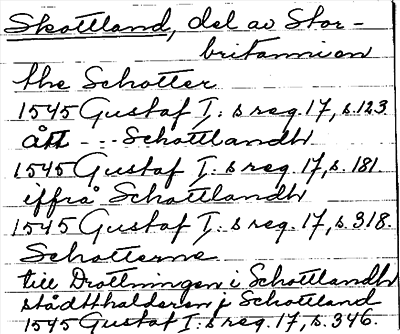 Skottland, del av Stor-
britannien
the Schotter
1545 Gustaf I:s reg. 17, s. 123
ått --- Schottlandh
1545 Gustaf I:s reg. 17, s. 181
iffrå Schottlandh
1545 Gustaf I:s reg. 17, s. 318.
Schotterne
till Drottningen i Schottlandh
stådtthalderen j Schottland
1545 Gustaf I:s reg. 17, s. 346.